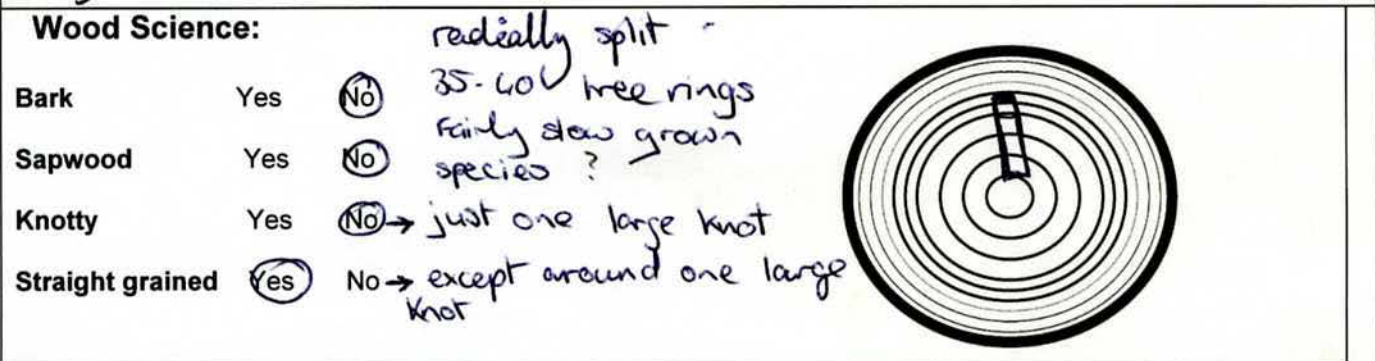 Wood Science:
radially split -
Bark Yes No 35-40 tree rings
fairly slow grown
Sapwood Yes No species ?
Knotty Yes No → just one large knot
Straight grained Yes No → except around one large
knot